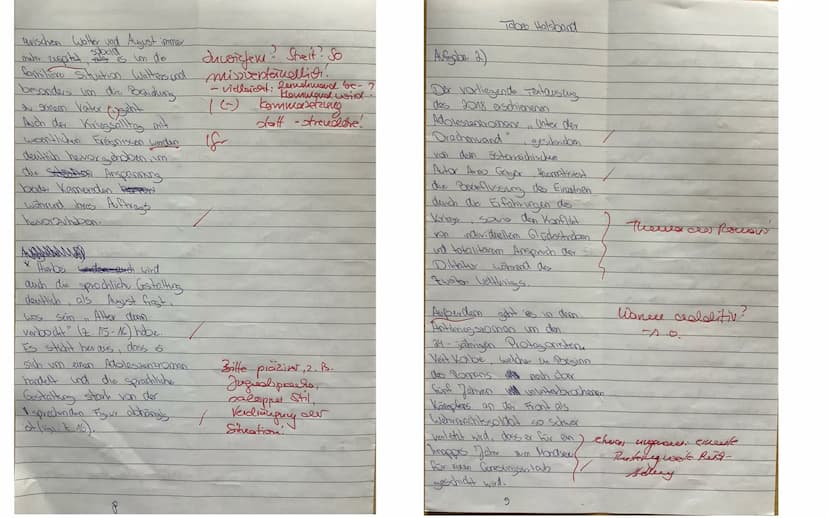 zwischen Walter und August immer
mehr sobald es um die
familiäre Situation Walters und
besonders um die Beziehung
zu seinem Vater geht
Auch der Kriegsalltag mit
wesentlichen Ereignissen werden
deutlich hervorgehoben, um
die Anspannung
beider
während ihres Auftrags
hervorzuheben.
zuweisen? Streit? So
missverständlich!
- vielleicht: zunehmend be-?
kommend wird.
(-) Kommasetzung
statt
Gr
* wird
auch die sprachliche Gestaltung
deutlich, als August fragt,
was sein „Alter denn
verbockt" (Z. 15-16) habe.
Es sticht heraus, dass es
sich um einen Adoleszenzroman
handelt und die sprachliche
Gestaltung stark von der
sprechenden Figur abhängig
ist (vgl. Z. 16).
Bitte präziser, z. B.
Jugendsprache,
saloppter Stil,
Verdrängung der
Situation!
8
Aufgabe 2)
Der vorliegende Textauszug
des 2018 erschienenen
Adoleszenzromans „Unter der
Drachenwand", geschrieben
von dem österreichischen
Autor Arno Geiger thematisiert
die Beeinflussung des Einzelnen
durch die Erfahrungen des
Kriegs, sowie den Konflikt
von individuellem Glücksstreben
und totalitärem Anspruch der
Diktatur während des
Zweiten Weltkriegs.
Thema des Romans!
Außerdem geht es in dem
Antikriegsroman um den
24-jährigen Protagonisten
Veit Kolbe, welcher zu Beginn
des Romans nach über
fünf Jahren ununterbrochenen
Kampfes an der Front als
Wehrmachtssoldat so schwer
verletzt wird, dass er für ein
knappes Jahr zum Mondsee
für einen Genesungsurlaub
geschickt wird.
Wieso additiv?
- s. o.
etwas ungenau: erneute
9